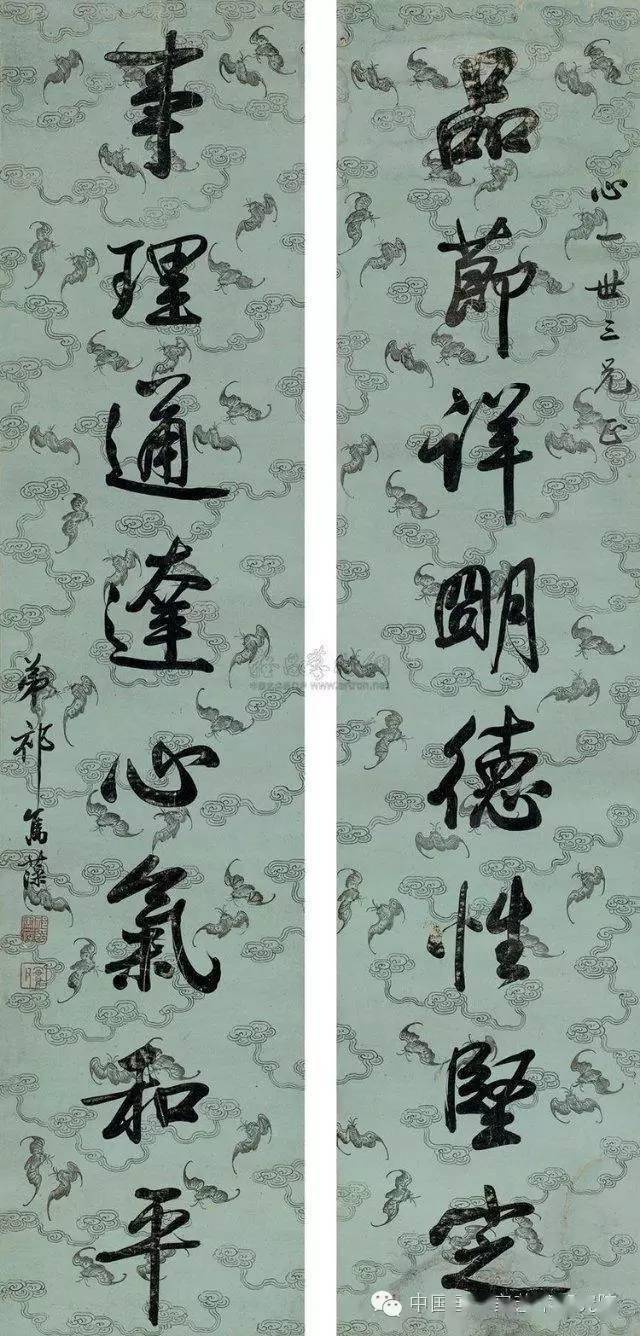 心一世三兄正
品節詳明德性堅定
事理通達心氣和平
弟祁寯藻
www.artron.net